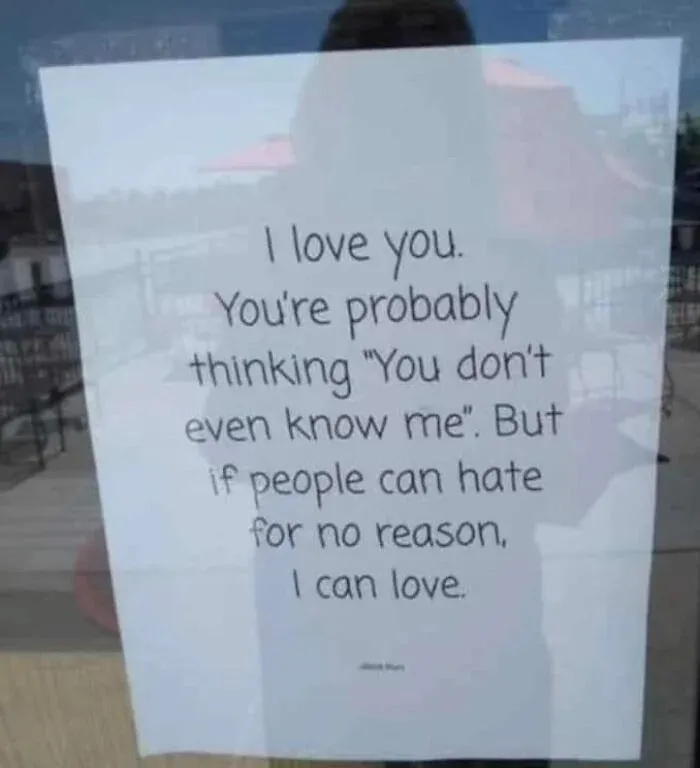 I love you.
You're probably
thinking "You don't
even know me". But
if people can hate
for no reason,
I can love.